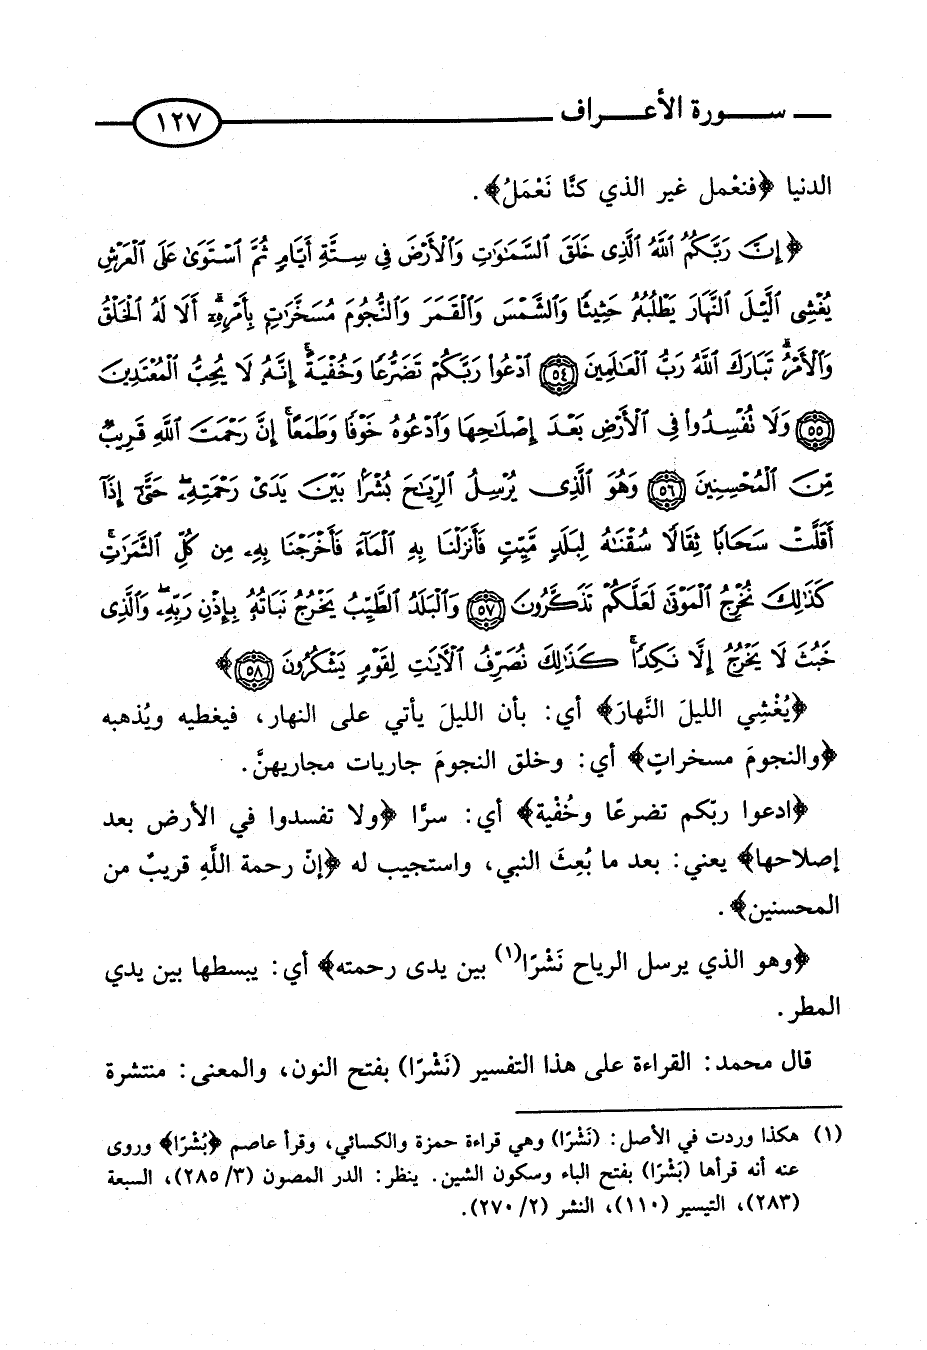 سورة الأعراف ١٢٧
الدنيا ﴿فنعْمل غير الذي كنَّا نَعْمَلُ﴾.
﴿إِنَّ رَبَّكُمُ اللَّهُ الَّذِى خَلَقَ السَّمَٰوَٰتِ وَالْأَرْضَ فِى سِتَّةِ أَيَّامٍ ثُمَّ اسْتَوَىٰ عَلَى الْعَرْشِ
يُغْشِى الَّيْلَ النَّهَارَ يَطْلُبُهُۥ حَثِيثًا وَالشَّمْسَ وَالْقَمَرَ وَالنُّجُومَ مُسَخَّرَٰتٍۭ بِأَمْرِهِۦٓ ۗ أَلَا لَهُ الْخَلْقُ
وَالْأَمْرُ ۗ تَبَارَكَ اللَّهُ رَبُّ الْعَٰلَمِينَ ٥٤ ادْعُوا۟ رَبَّكُمْ تَضَرُّعًا وَخُفْيَةً ۚ إِنَّهُۥ لَا يُحِبُّ الْمُعْتَدِينَ
٥٥ وَلَا تُفْسِدُوا۟ فِى الْأَرْضِ بَعْدَ إِصْلَٰحِهَا وَادْعُوهُ خَوْفًا وَطَمَعًا ۚ إِنَّ رَحْمَتَ اللَّهِ قَرِيبٌ
مِّنَ الْمُحْسِنِينَ ٥٦ وَهُوَ الَّذِى يُرْسِلُ الرِّيَٰحَ بُشْرًۢا بَيْنَ يَدَىْ رَحْمَتِهِۦ ۖ حَتَّىٰٓ إِذَآ
أَقَلَّتْ سَحَابًا ثِقَالًا سُقْنَٰهُ لِبَلَدٍ مَّيِّتٍ فَأَنزَلْنَا بِهِ الْمَآءَ فَأَخْرَجْنَا بِهِۦ مِن كُلِّ الثَّمَرَٰتِ ۚ
كَذَٰلِكَ نُخْرِجُ الْمَوْتَىٰ لَعَلَّكُمْ تَذَكَّرُونَ ٥٧ وَالْبَلَدُ الطَّيِّبُ يَخْرُجُ نَبَاتُهُۥ بِإِذْنِ رَبِّهِۦ ۖ وَالَّذِى
خَبُثَ لَا يَخْرُجُ إِلَّا نَكِدًا ۚ كَذَٰلِكَ نُصَرِّفُ الْءَايَٰتِ لِقَوْمٍ يَشْكُرُونَ ٥٨﴾
﴿يُغْشِي الليلَ النَّهارَ﴾ أي: بأن الليلَ يأتي على النهار، فيغطيه ويُذهبه
﴿والنجومَ مسخراتٍ﴾ أي: وخلق النجومَ جاريات مجاريهنَّ.
﴿ادعوا ربّكم تضرعًا وخُفْية﴾ أي: سرًّا ﴿ولا تفسدوا في الأرض بعد
إصلاحها﴾ يعني: بعد ما بُعِثَ النبي، واستجيب له ﴿إنّ رحمة اللَّهِ قريبٌ من
المحسنين﴾.
﴿وهو الذي يرسل الرياح نَشْرًا(١) بين يدى رحمته﴾ أي: يبسطها بين يدي
المطر.
قال محمد: القراءة على هذا التفسير (نَشْرًا) بفتح النون، والمعنى: منتشرة
(١) هكذا وردت في الأصل: (نَشْرًا) وهي قراءة حمزة والكسائي، وقرأ عاصم ﴿بُشْرًا﴾ وروى
عنه أنه قرأها (بَشْرًا) بفتح الباء وسكون الشين. ينظر: الدر المصون (٣/ ٢٨٥)، السبعة
(٢٨٣)، التيسير (١١٠)، النشر (٢/ ٢٧٠).